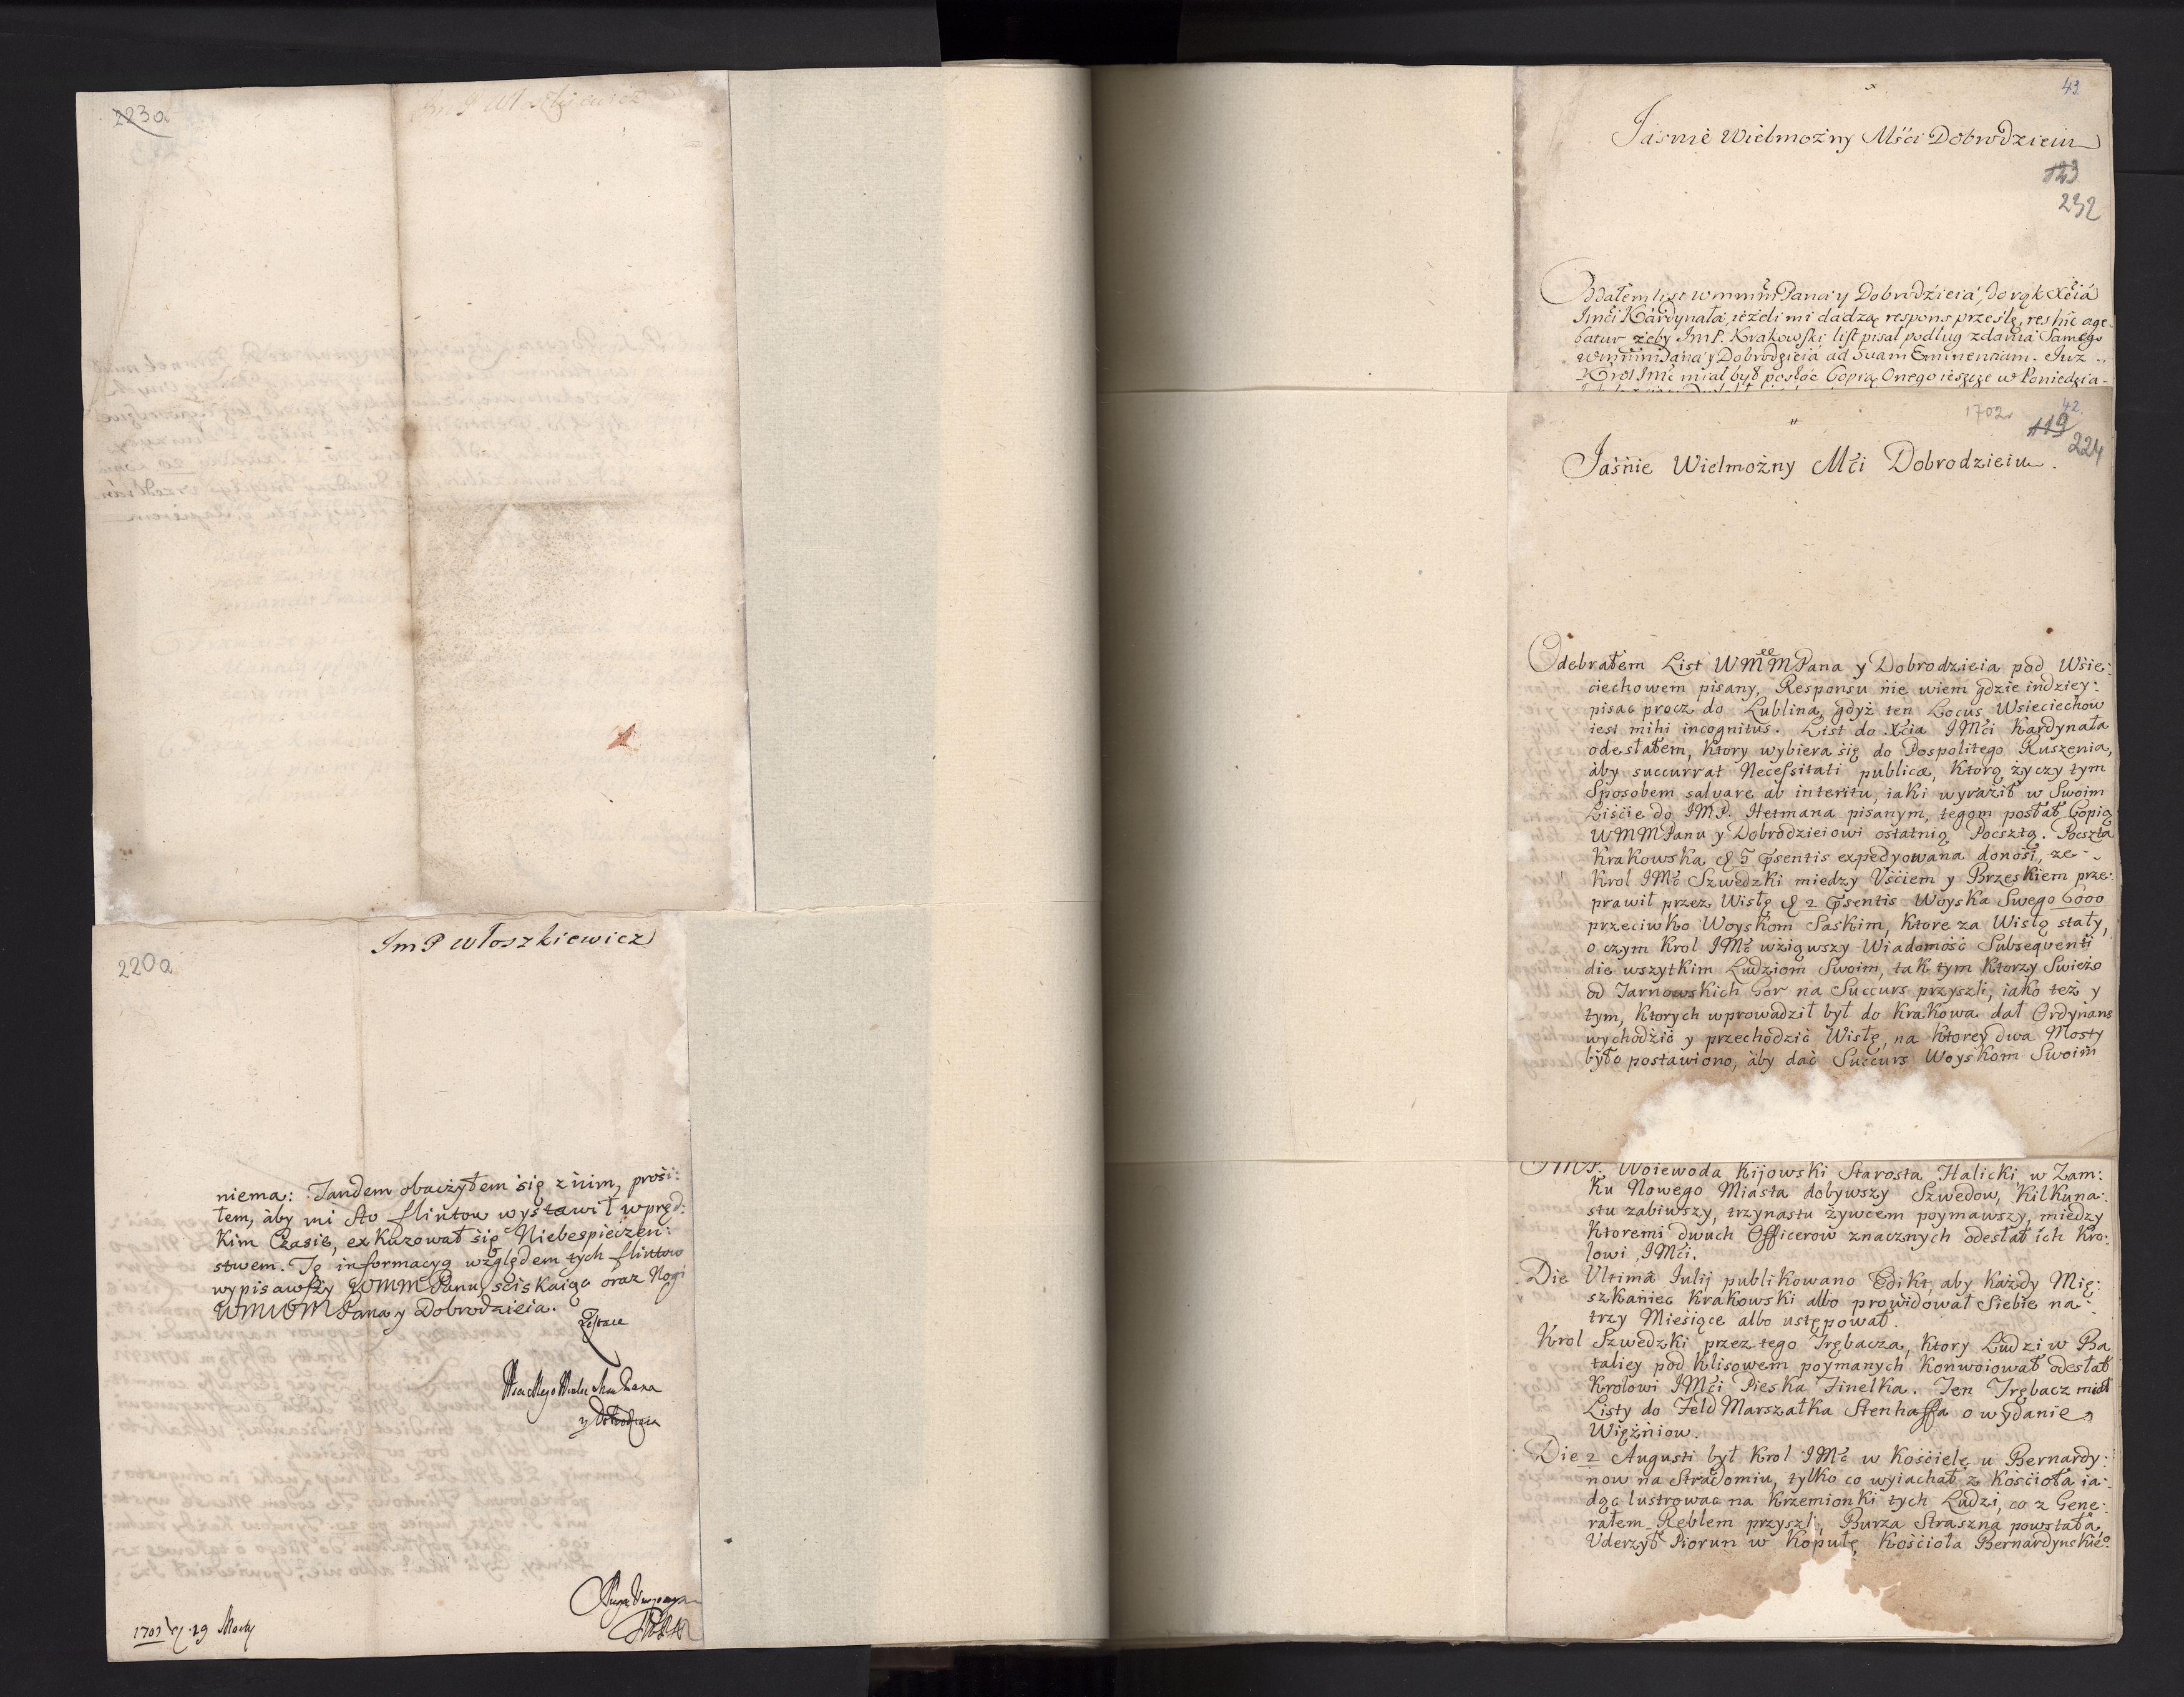 223a
Im P Włoszkiewicz
Im P Włoszkiewicz
220a
niema: Tandem obaczyłem się z nim, prosi:
łem, aby mi sto flintow wystawił wpręd:
kim Czasie, exkuzował się Niebespieczeń:
stwem. Tę informacyą względem tych flintow
wypisawszy WMMPanu, sciskaiąc oraz Nogi
WMWMPana y Dobrodzieia.
Zostaie
y Dobrodzieia
1702 29
43
Jasnie Wielmozny Msci Dobrodzieiu
123
232
Oddałem list wmmm Pana y Dobrodzieia, do rąk Xcia
Imci Kardynała, ieżeli mi dadzą respons prześlę, res hic age:
batur żeby Im P. Krakowski list pisał podług zdania Samego
wmmm Pana y Dobrodzieia ad Suam Eminentiam. Iuz
Krol Imć miał był posłać Copią Onego ieszcze w Poniedzia-
1702
42.
119
224
Jaśnie Wielmożny Mći Dobrodzieiu.
Odebrałem List WMMPana y Dobrodzieia pod Wsie:
ciechowem pisany, Responsu nie wiem gdzie indziey:
pisac procz do Lublina, gdyż ten Locus Wsieciechow
iest mihi incognitus. List do Xcia IMći Kardynała
odesłałem, ktory wybiera się do Pospolitego Ruszenia,
aby succurrat Necessitati publicæ, ktorą życzy tym
Sposobem salvare ab interitu, iaki wyraził w Swoim
Liście do IMP. Hetmana pisanym, tegom posłał Copią
WMMPanu y Dobrodzieiowi ostatnią Pocsztą. Pocszta
Krakowska d 5 psentis expedyowana donosi, ze
Krol IMć Szwedzki miedzy Uściem y Brzeskiem prze:
prawił przez Wisłę d 2 psentis Woyska Swego 6000
przeciwko Woyskom Saskim, ktore za Wisłą stały,
o czym Krol IMć wziąwszy Wiadomość Subsequenti
die wszytkim Ludziom Swoim, tak tym ktorzy Swieżo
od Tarnowskich Gor na Succurs przyszli, iako też y
tym, ktorych wprowadził był do Krakowa dał Ordynans
wychodzić y przechodzić Wisłę, na ktorey dwa Mosty
było postawiono, aby dać Succurs Woyskom Swoim
IMP. Woiewoda Kijowski Starosta Halicki w Zam:
ku Nowego Miasta dobywszy Szwedow, kilkuna:
stu zabiwszy, trzynastu żywcem poymawszy, miedzy
ktoremi dwuch Officerow znacznych odesłał ich Kro:
lowi IMći.
Die Ultimâ Iulij publikowano Edikt, aby każdy Mię:
szkaniec Krakowski albo prowidował Siebie na
trzy Miesiące albo ustępował.
Krol Szwedzki przez tego Trębacza, ktory Ludzi w Ba
taliey pod Klisowem poymanych konwoiował odesłał
Krolowi IMći Pieska Finelka. Ten Trębacz miał
Listy do Feld Marszałka Stenhaffa o wydanie
Więźniow.
Die 2 Augusti był Krol IMć w Kościele u Bernardy:
now na Stradomiu, tylko co wyiachał z Kościoła ia:
dąc lustrowac na Krzemionki tych Ludzi, co z Gene:
rałem Reblem przyszli, Burza Straszna powstała
Uderzył Piorun w Kopułę Kościoła Bernardynskiego